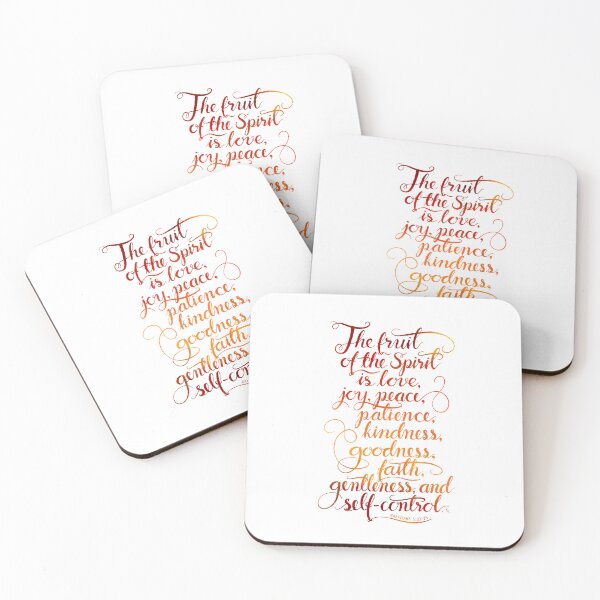 The fruit
of the Spirit
is love,
joy, peace,
The fruit
of the Spirit
is love,
joy, peace,
patience,
kindness,
goodness,
faith,
The fruit
of the Spirit
is love,
joy, peace,
patience,
kindness,
goodness,
faith,
gentleness,
self-con
The fruit
of the Spirit
is love,
joy, peace,
patience,
kindness,
goodness,
faith,
gentleness, and
self-control.